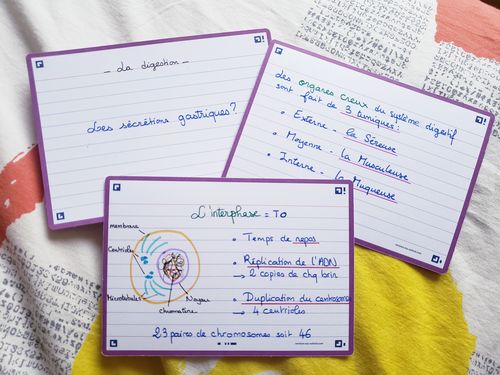 - La digestion -
Les sécrétions gastriques?
Les organes creux du système digestif
sont fait de 3 tuniques:
• Externe - la Séreuse
• Moyenne - la Musculeuse
• Interne - la Muqueuse
L'interphase = TO
membrane
Centrioles
Microtubules
chromatine
Noyau
• Temps de repos
• Réplication de l'ADN
→ 2 copies de chq brin
• Duplication du centrosome
→ 4 centrioles
23 paires de chromosomes soit 46